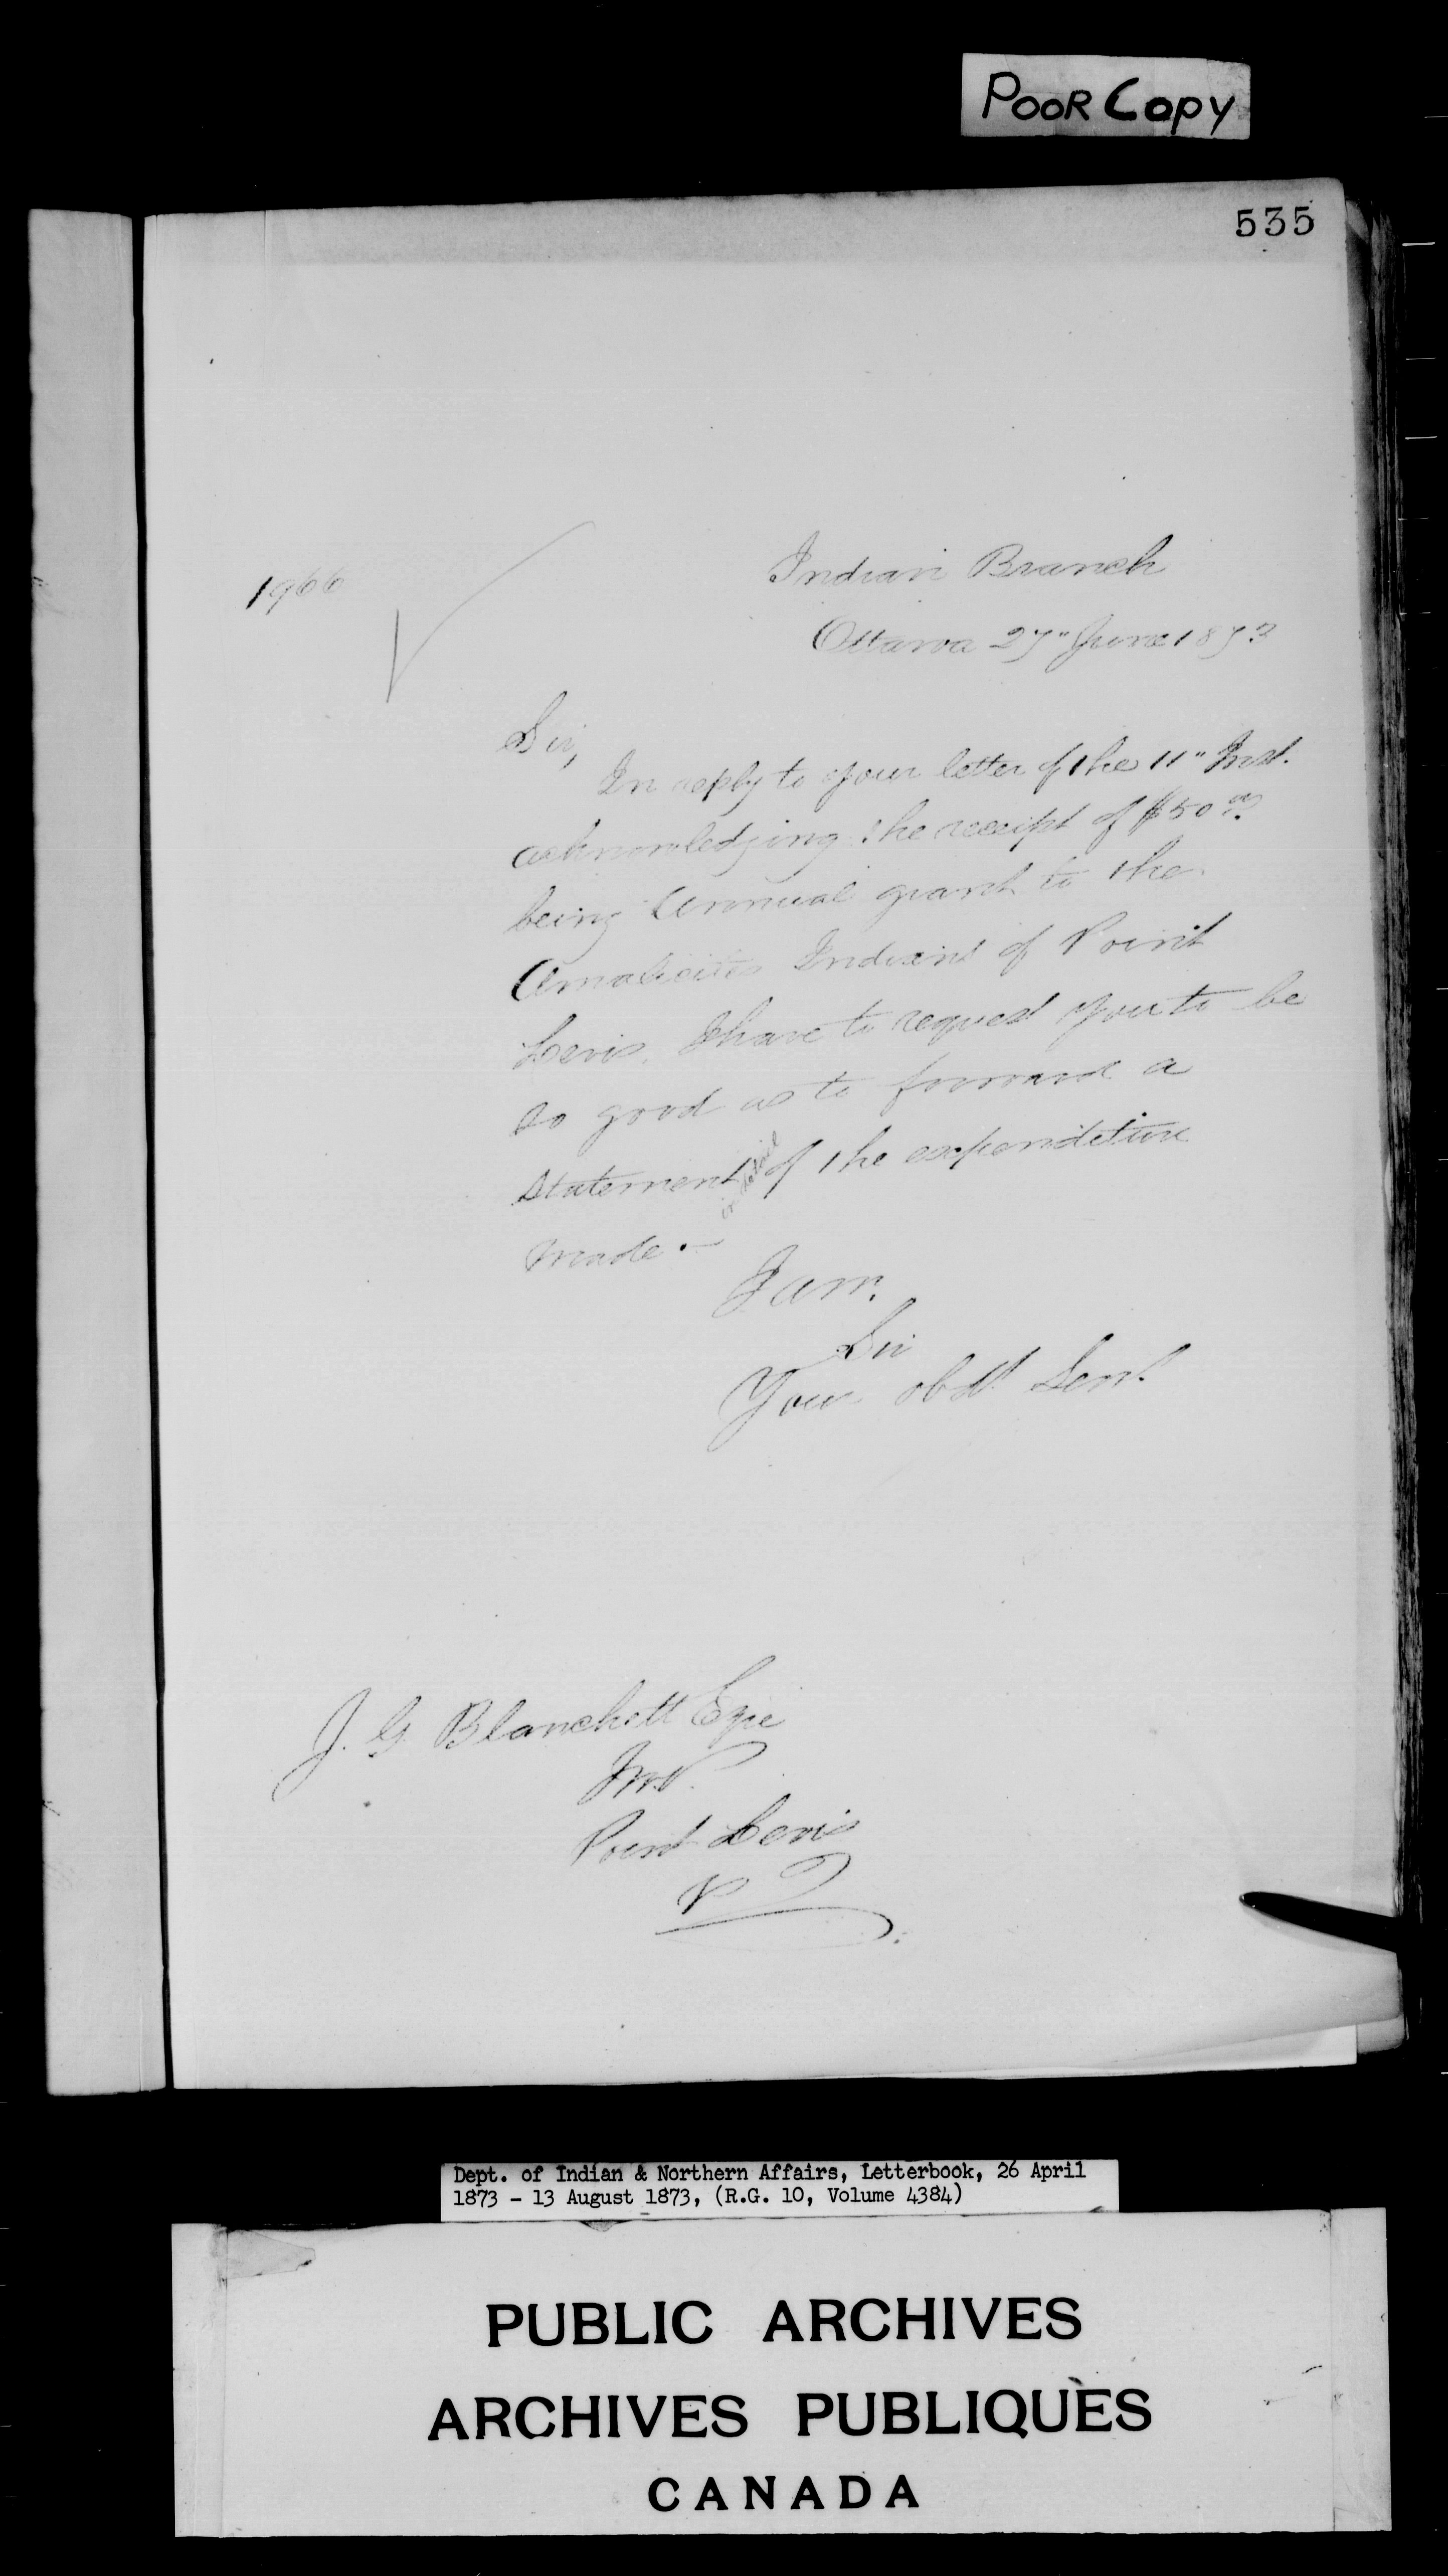 POOR COPY
535
1966
Indian Branch
Ottawa 27" June 1873
Sir,
In reply to your letter of the 11" Inst.
acknowledging the receipt of $50.00
being Annual grant to the
Amalicites Indians of Point
Levis, I have to request you to be
so good as to forward a
statement in detail of the expenditure
made.—
I am.
Sir
Your obdt. Servt.
J. G. Blanchett Eqre
M.P.
Point Levis
P Q
Dept. of Indian & Northern Affairs, Letterbook, 26 April
1873 - 13 August 1873, (R.G. 10, Volume 4384)
PUBLIC ARCHIVES
ARCHIVES PUBLIQUES
CANADA